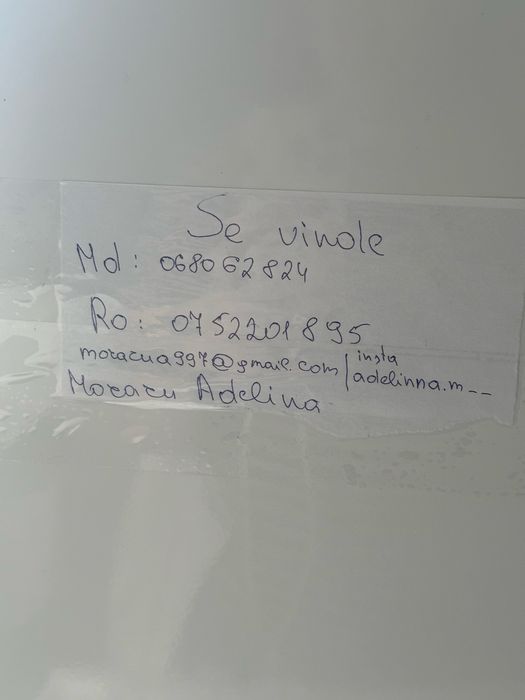 Se vinde
Md: 068062824
Ro: 0752201895
moracua997@gmail.com | insta adelinna.m__
Moracu Adelina